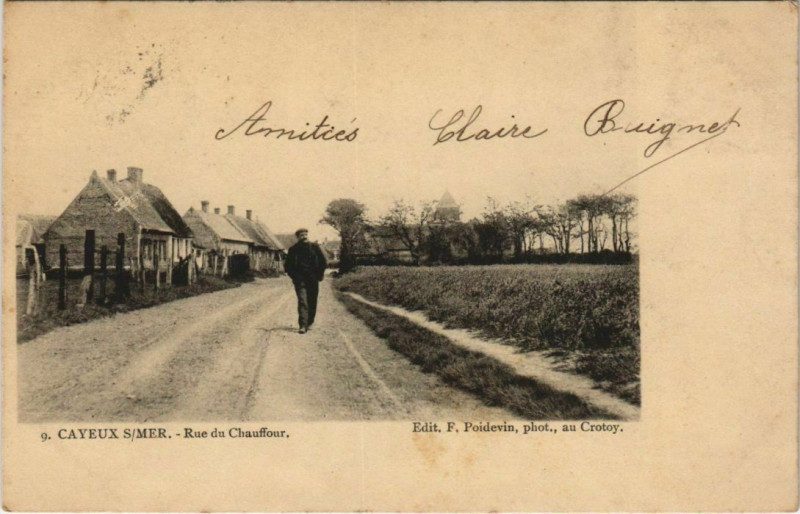 Amitiés Claire Buignet
9. CAYEUX S/MER. - Rue du Chauffour.
Edit. F. Poidevin, phot., au Crotoy.